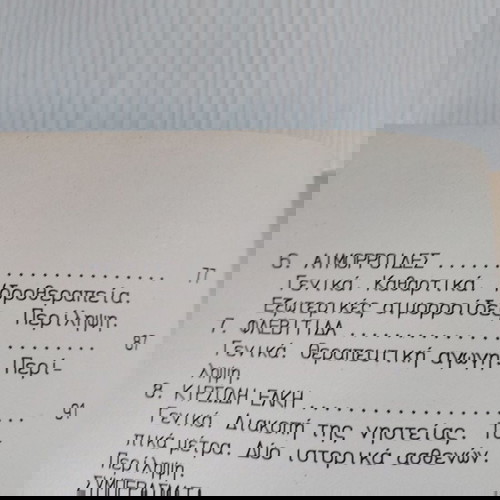 77
δροθεραπεία.
Περίληψη.
87
Περί-
91
6. ΑΙΜΟΡΡΟΪΔΕΣ
Γενικά. Καθαρτικά.
Εξωτερικές αιμορροΐδε
7. ΦΛΕΒΙΤΙΔΑ
Γενικά. Θεραπευτική αγωγή.
ληψη
8. ΚΙΡΣΩΔΗ ΕΛΚΗ
Γενικά. Διακοπή της νηστείας.
πικά μέτρα. Δύο ιστορικά ασθενών.
Περίληψη
ΣΥΜΠΕΡΑΣΜΑΤΑ